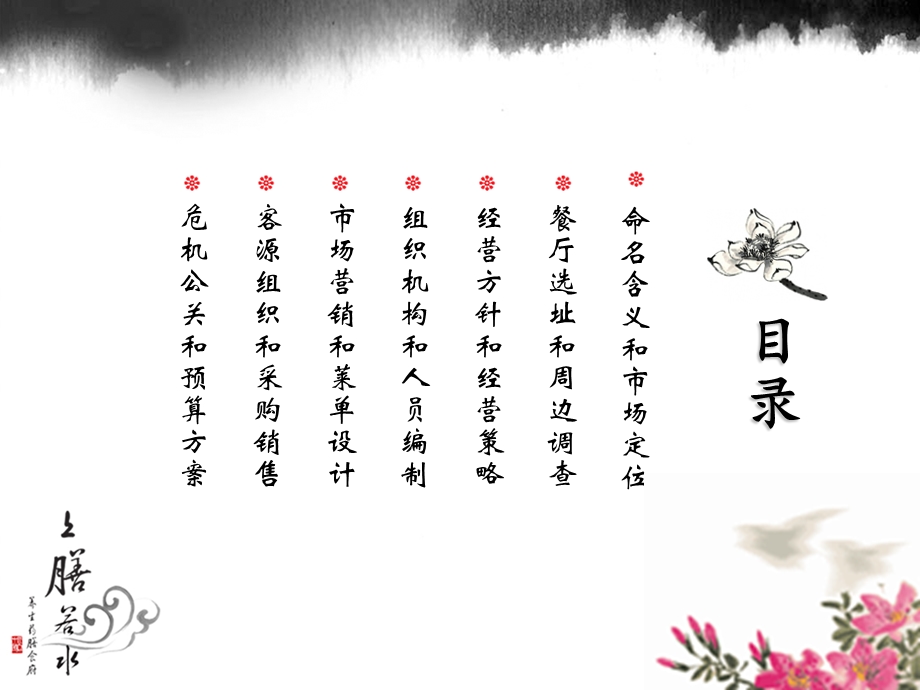 目录
命名含义和市场定位
餐厅选址和周边调查
经营方针和经营策略
组织机构和人员编制
市场营销和菜单设计
客源组织和采购销售
危机公关和预算方案
上膳若水
养生药膳会府